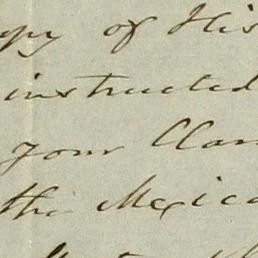 py of His
instructed
your Clai
the Mexica